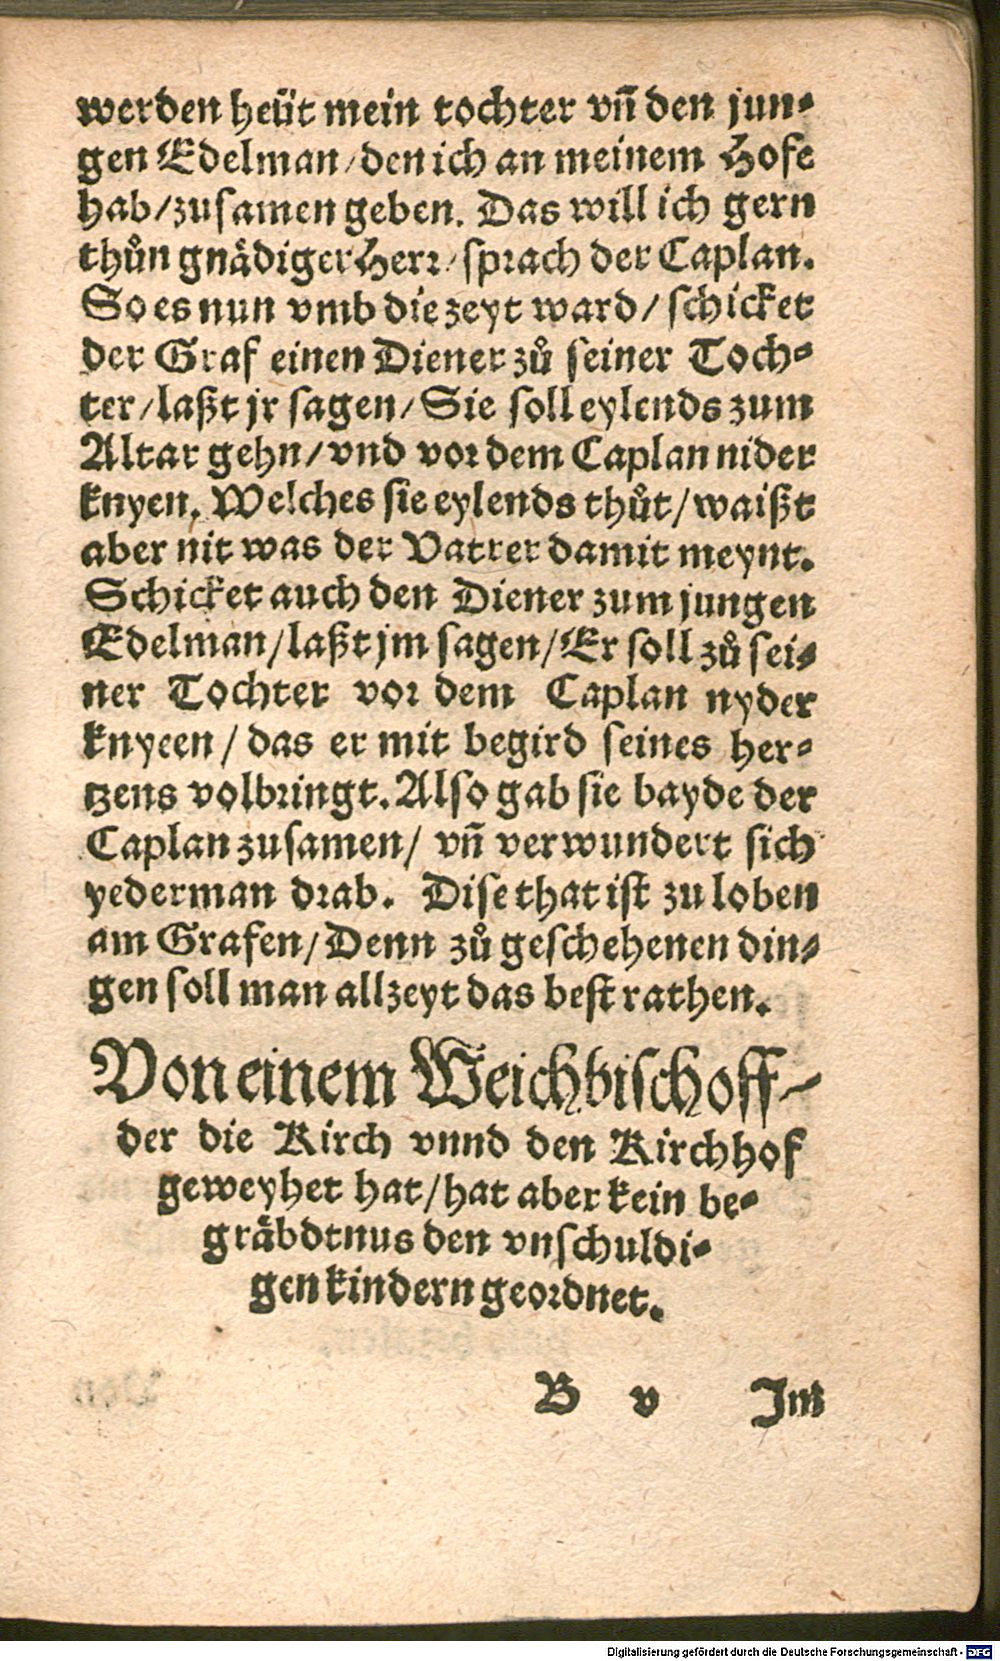 werden heüt mein tochter vn̄ den jun⸗
gen Edelman/den ich an meinem Hofe
hab/zusamen geben. Das will ich gern
thůn gnådiger Herr/sprach der Caplan.
So es nun vmb die zeyt ward/schicket
der Graf einen Diener zů seiner Toch⸗
ter/laßt jr sagen/Sie soll eylends zum
Altar gehn/vnd vor dem Caplan nider
knyen. Welches sie eylends thůt/waißt
aber nit was der Vatter damit meynt.
Schicket auch den Diener zum jungen
Edelman/laßt jm sagen/Er soll zů sei⸗
ner Tochter vor dem Caplan nyder
knyeen/das er mit begird seines her⸗
tzens volbringt. Also gab sie bayde der
Caplan zusamen/ vn̄ verwundert sich
yederman drab. Dise that ist zu loben
am Grafen/Denn zů geschehenen din⸗
gen soll man allzeyt das best rathen.
Von einem Weichbischoff/
der die Kirch vnnd den Kirchhof
geweyhet hat/hat aber kein be⸗
gråbdtnus den vnschuldi⸗
gen kindern geordnet.
B v Im
Digitalisierung gefördert durch die Deutsche Forschungsgemeinschaft - DFG